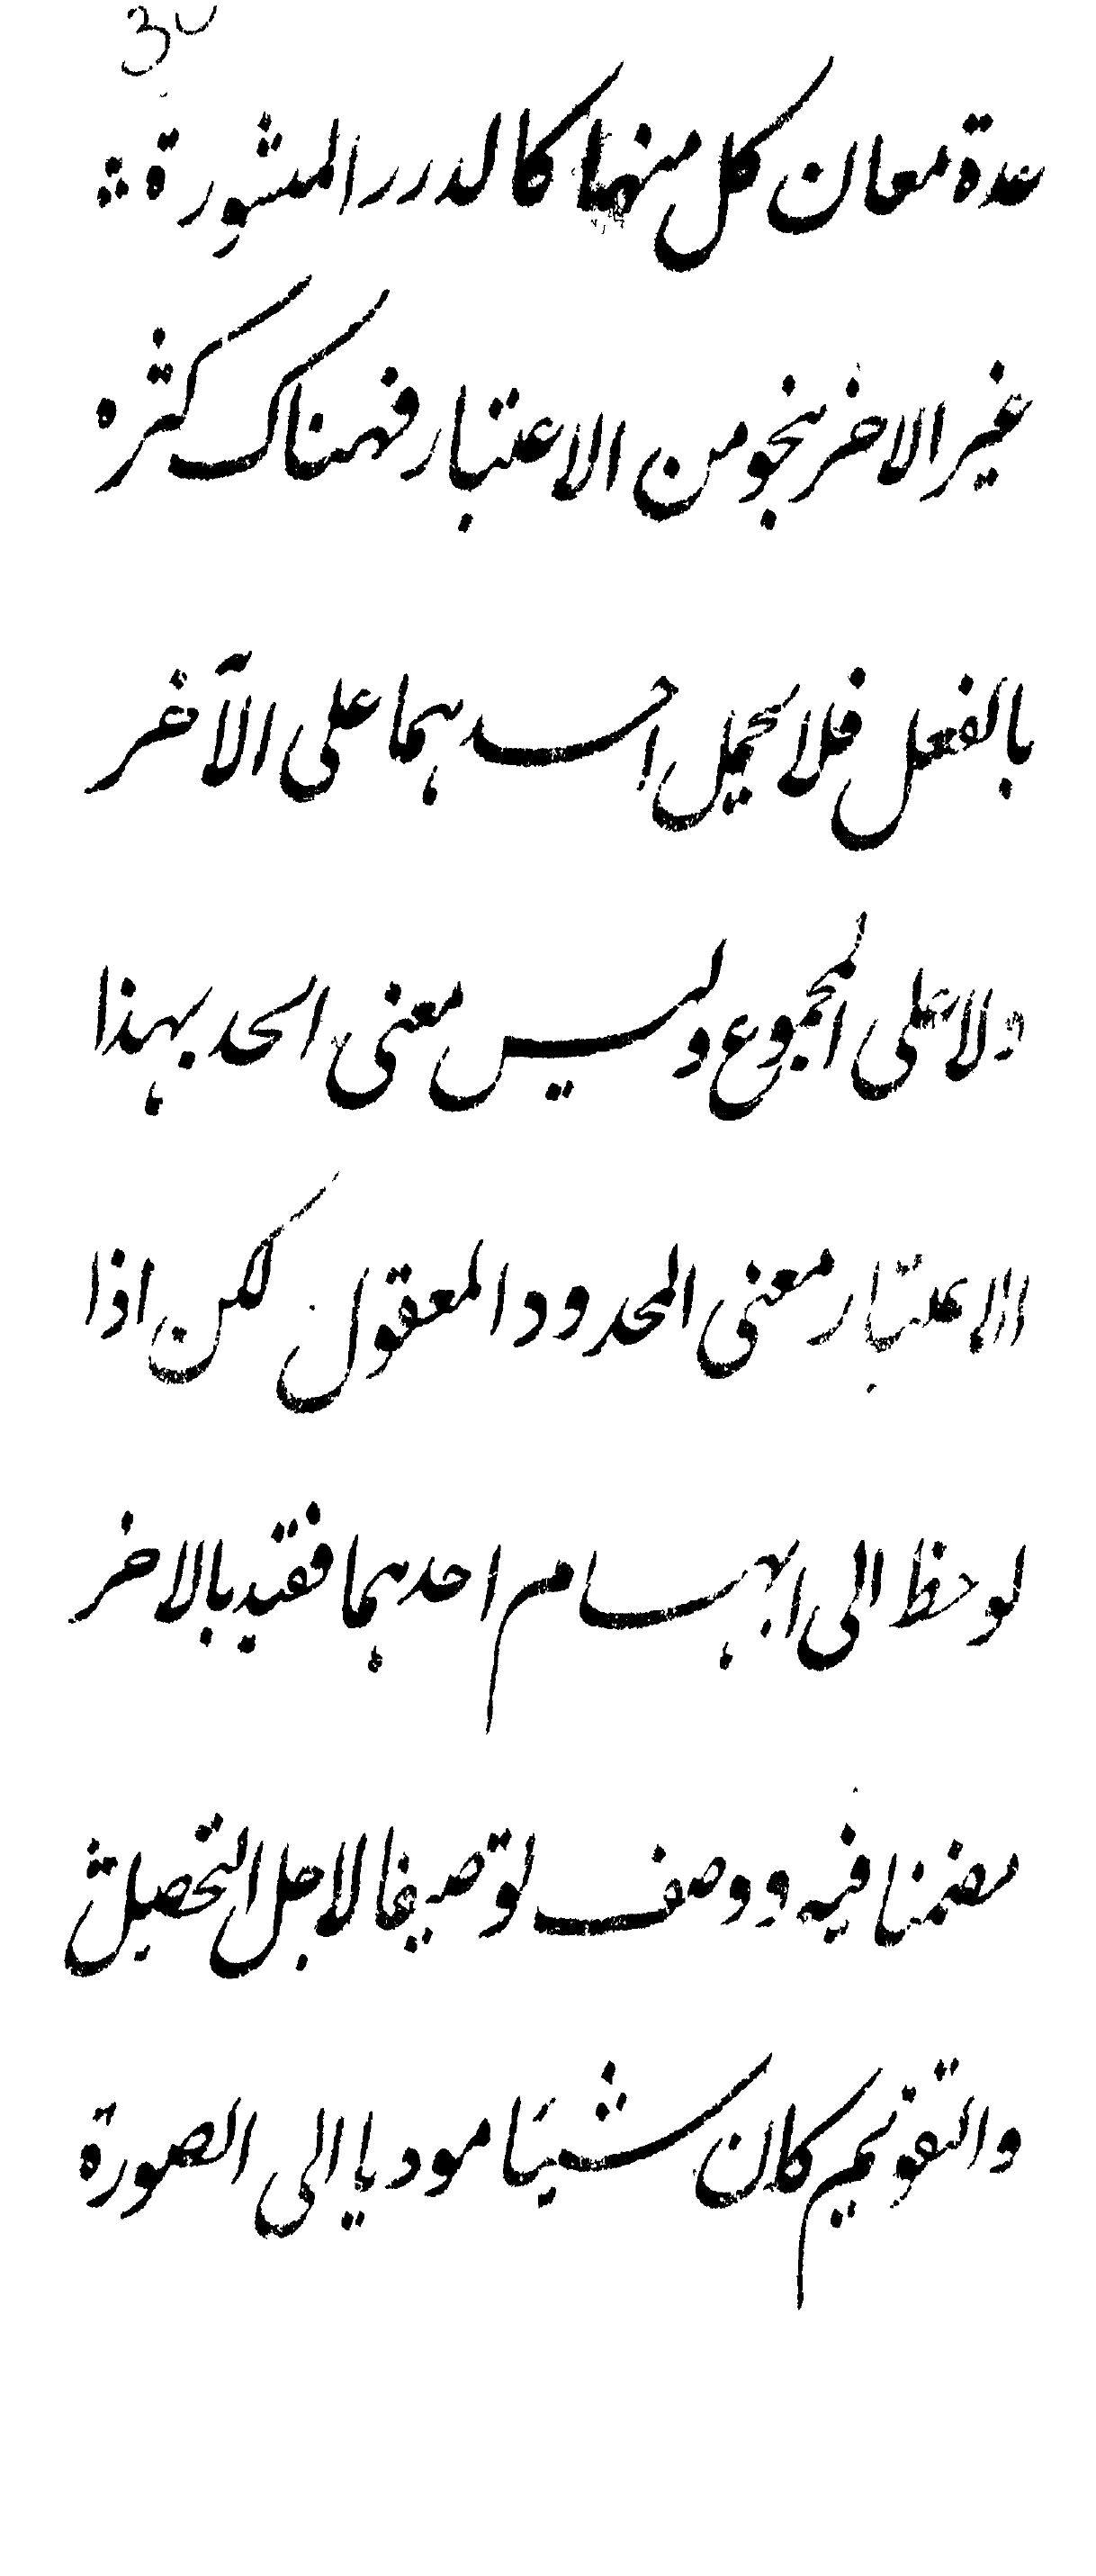 عدة معان كل منهما كالدرر المنثورة
غير الاخر بنحو من الاعتبار فهناك كثره
بالفعل فلا يحمل احدهما على الآخر
ولا على المجموع وليس معنى الحد بهذا
الاعتبار معنى المحدود المعقول لكن اذا
لوحظ الى ابهام احدهما فقيد بالاخر
مضمنا فيه ووصف توصيفا لاجل التحصيل
والتقويم كان شيئا موديا الى الصورة